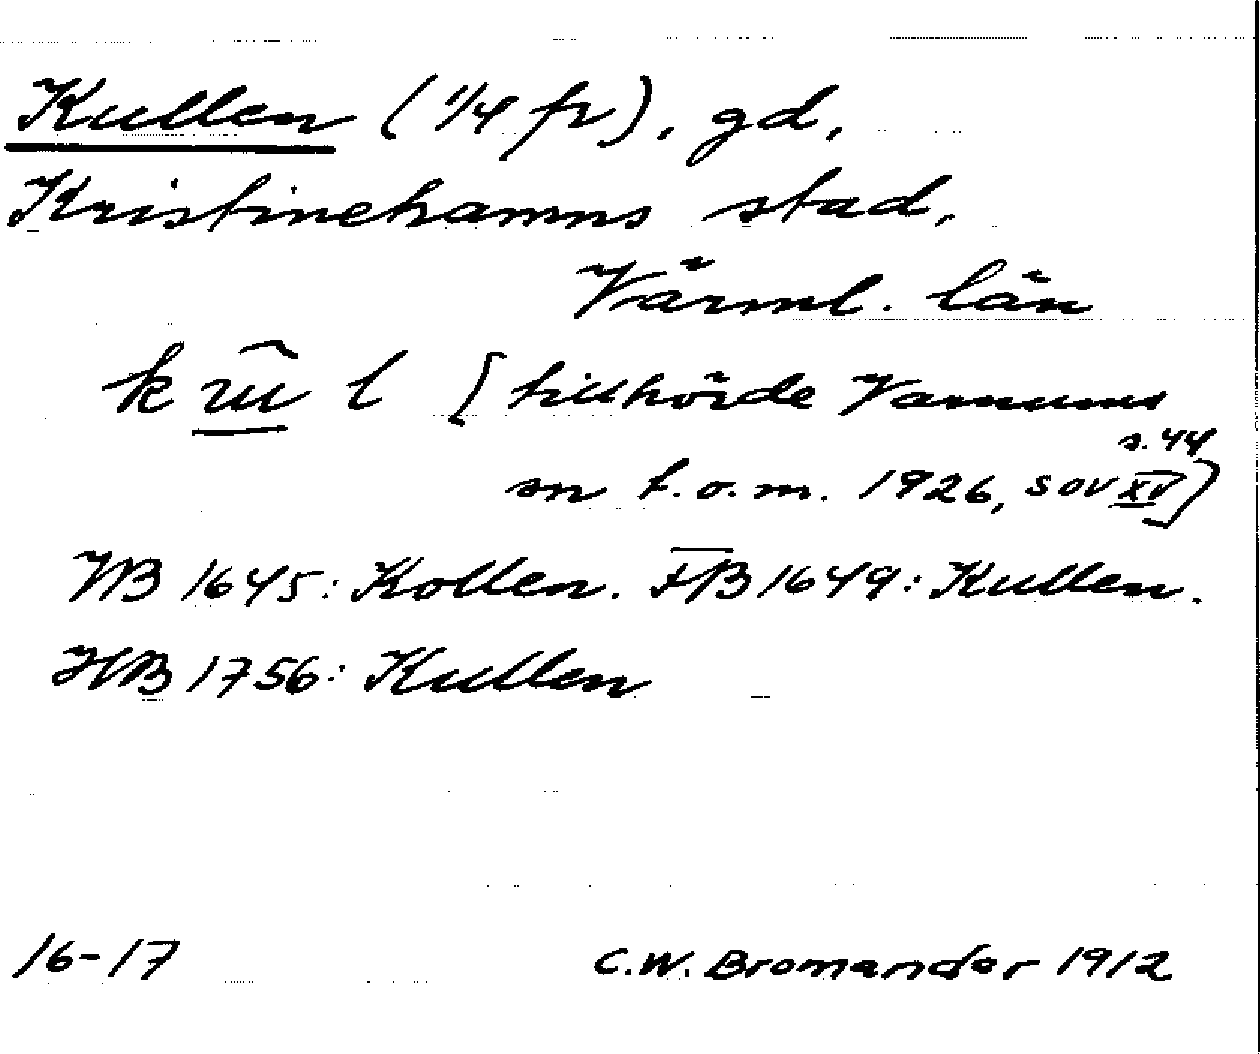 Kullen (1/4 fr), gd,
Kristinehamns stad,
Värml. län
k l [tillhörde Varnums
s. 44
sn t.o.m. 1926, SOV XV]
JB 1645: Kollen. JB 1649: Kullen.
HB 1756: Kullen
16-17 C.W. Bromander 1912